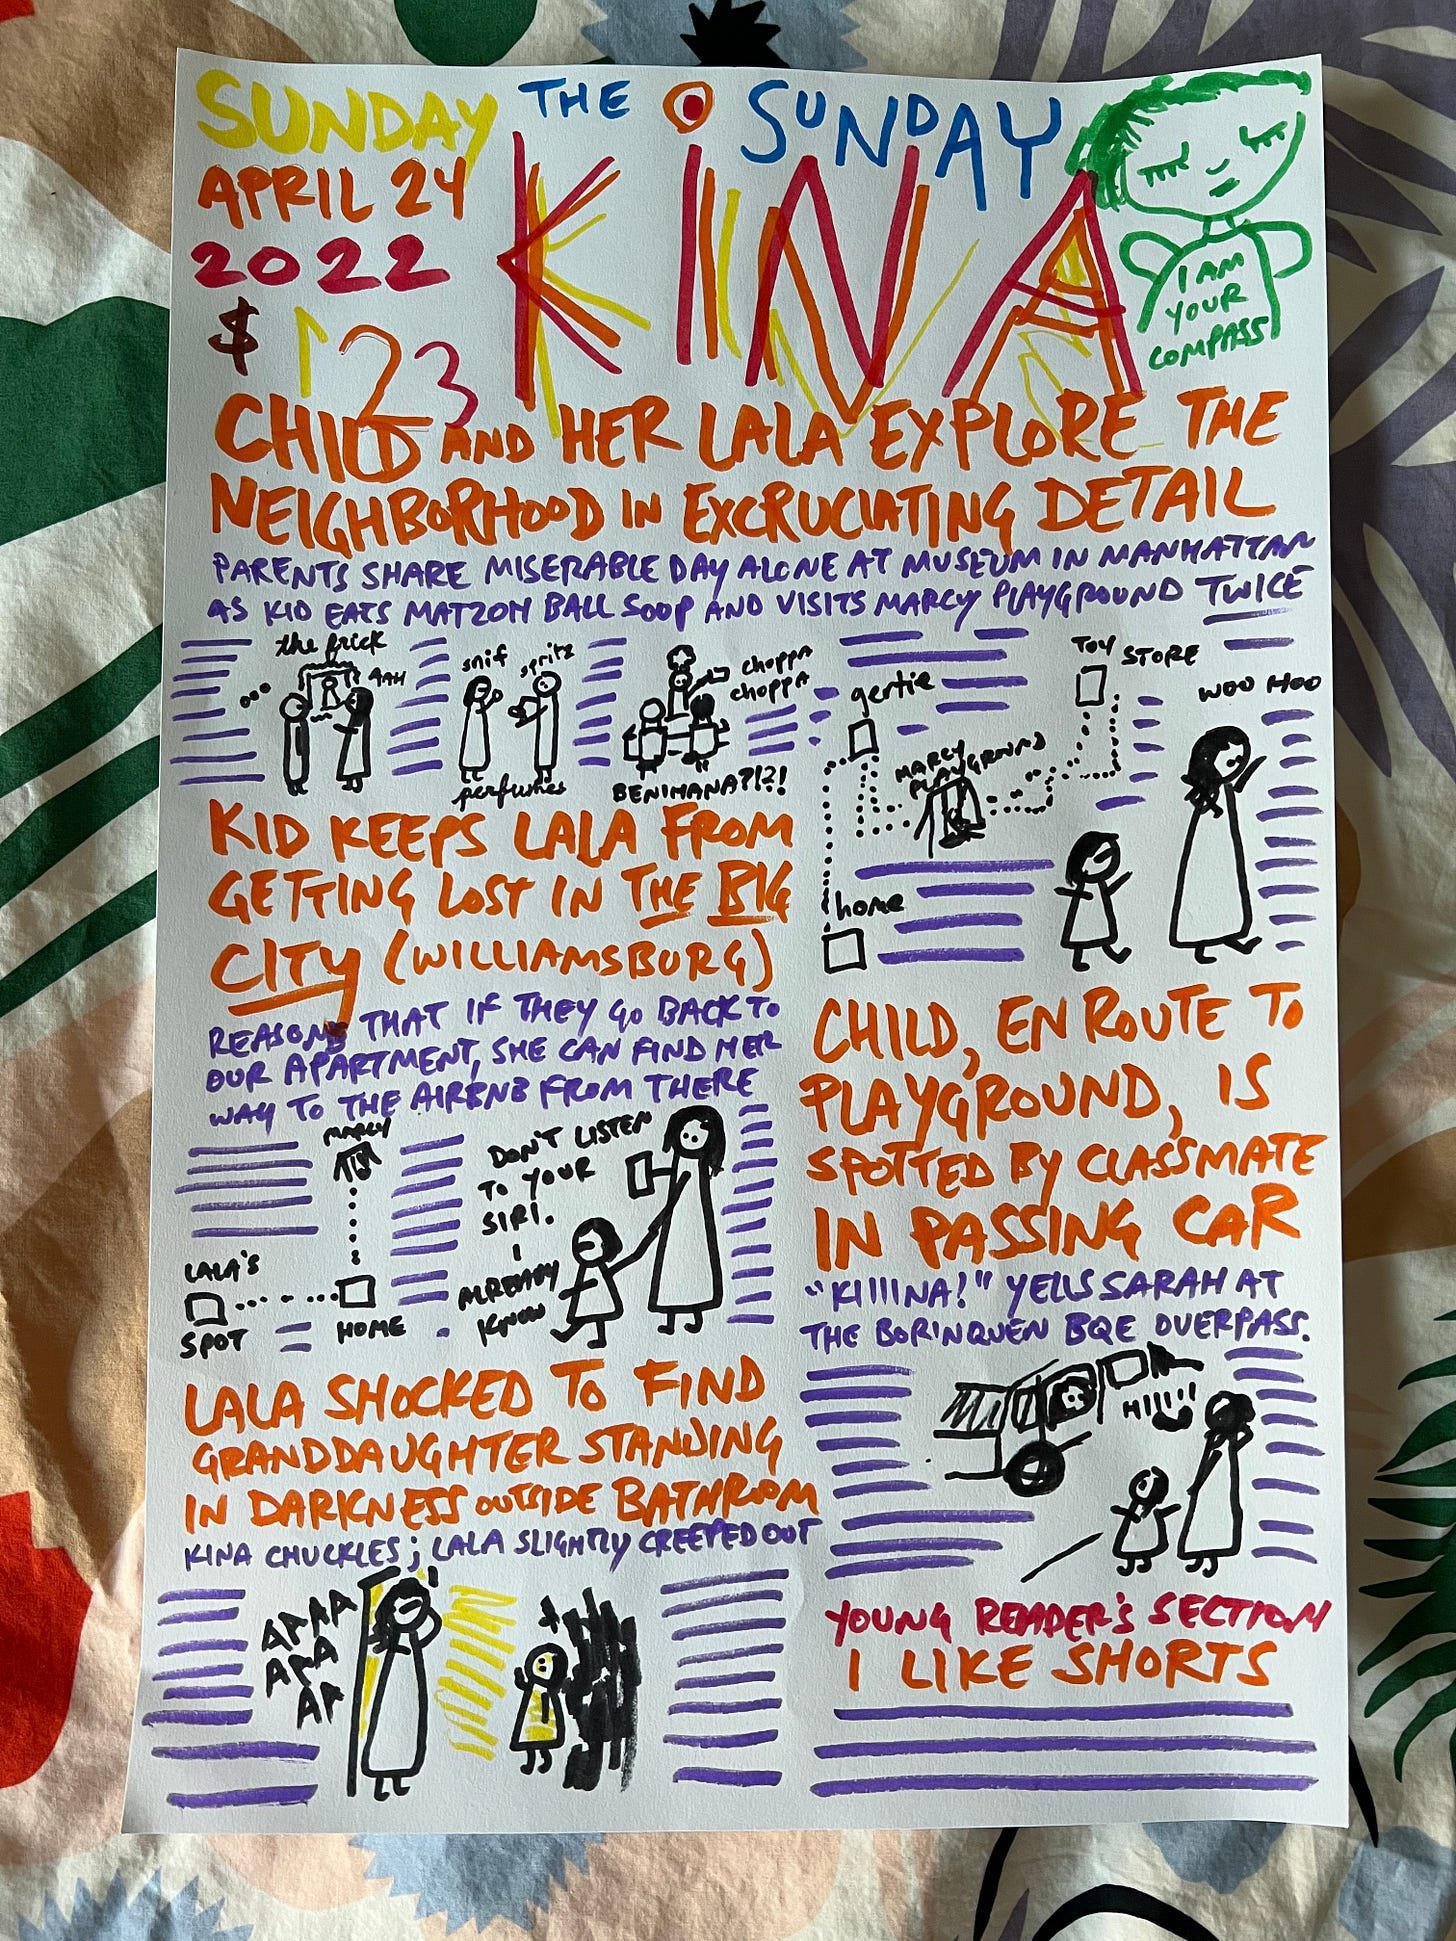 SUNDAY
APRIL 24
2022
$ 123
THE SUNDAY
KINA
I AM
YOUR
COMPASS
CHILD AND HER LALA EXPLORE THE
NEIGHBORHOOD IN EXCRUCIATING DETAIL
PARENTS SHARE MISERABLE DAY ALONE AT MUSEUM IN MANHATTAN
AS KID EATS MATZOH BALL SOUP AND VISITS MARCY PLAYGROUND TWICE
the frick
AAH
snif
spritz
perfumes
choppa
choppa
BENIHANA?!?!
gertie
TOY STORE
MARCY
PLAYGROUND
WOO HOO
home
KID KEEPS LALA FROM
GETTING LOST IN THE BIG
CITY (WILLIAMSBURG)
REASONS THAT IF THEY GO BACK TO
OUR APARTMENT, SHE CAN FIND HER
WAY TO THE AIRBNB FROM THERE
MARCY
LALA'S
SPOT
HOME
DON'T LISTEN
TO YOUR
SIRI.
I
ALREADY
KNOW
CHILD, EN ROUTE TO
PLAYGROUND, IS
SPOTTED BY CLASSMATE
IN PASSING CAR
"KIIIINA!" YELLS SARAH AT
THE BORINQUEN BQE OVERPASS.
HIIII
LALA SHOCKED TO FIND
GRANDDAUGHTER STANDING
IN DARKNESS OUTSIDE BATHROOM
KINA CHUCKLES; LALA SLIGHTLY CREEPED OUT
AAAA
AAA
AA
YOUNG READER'S SECTION
I LIKE SHORTS